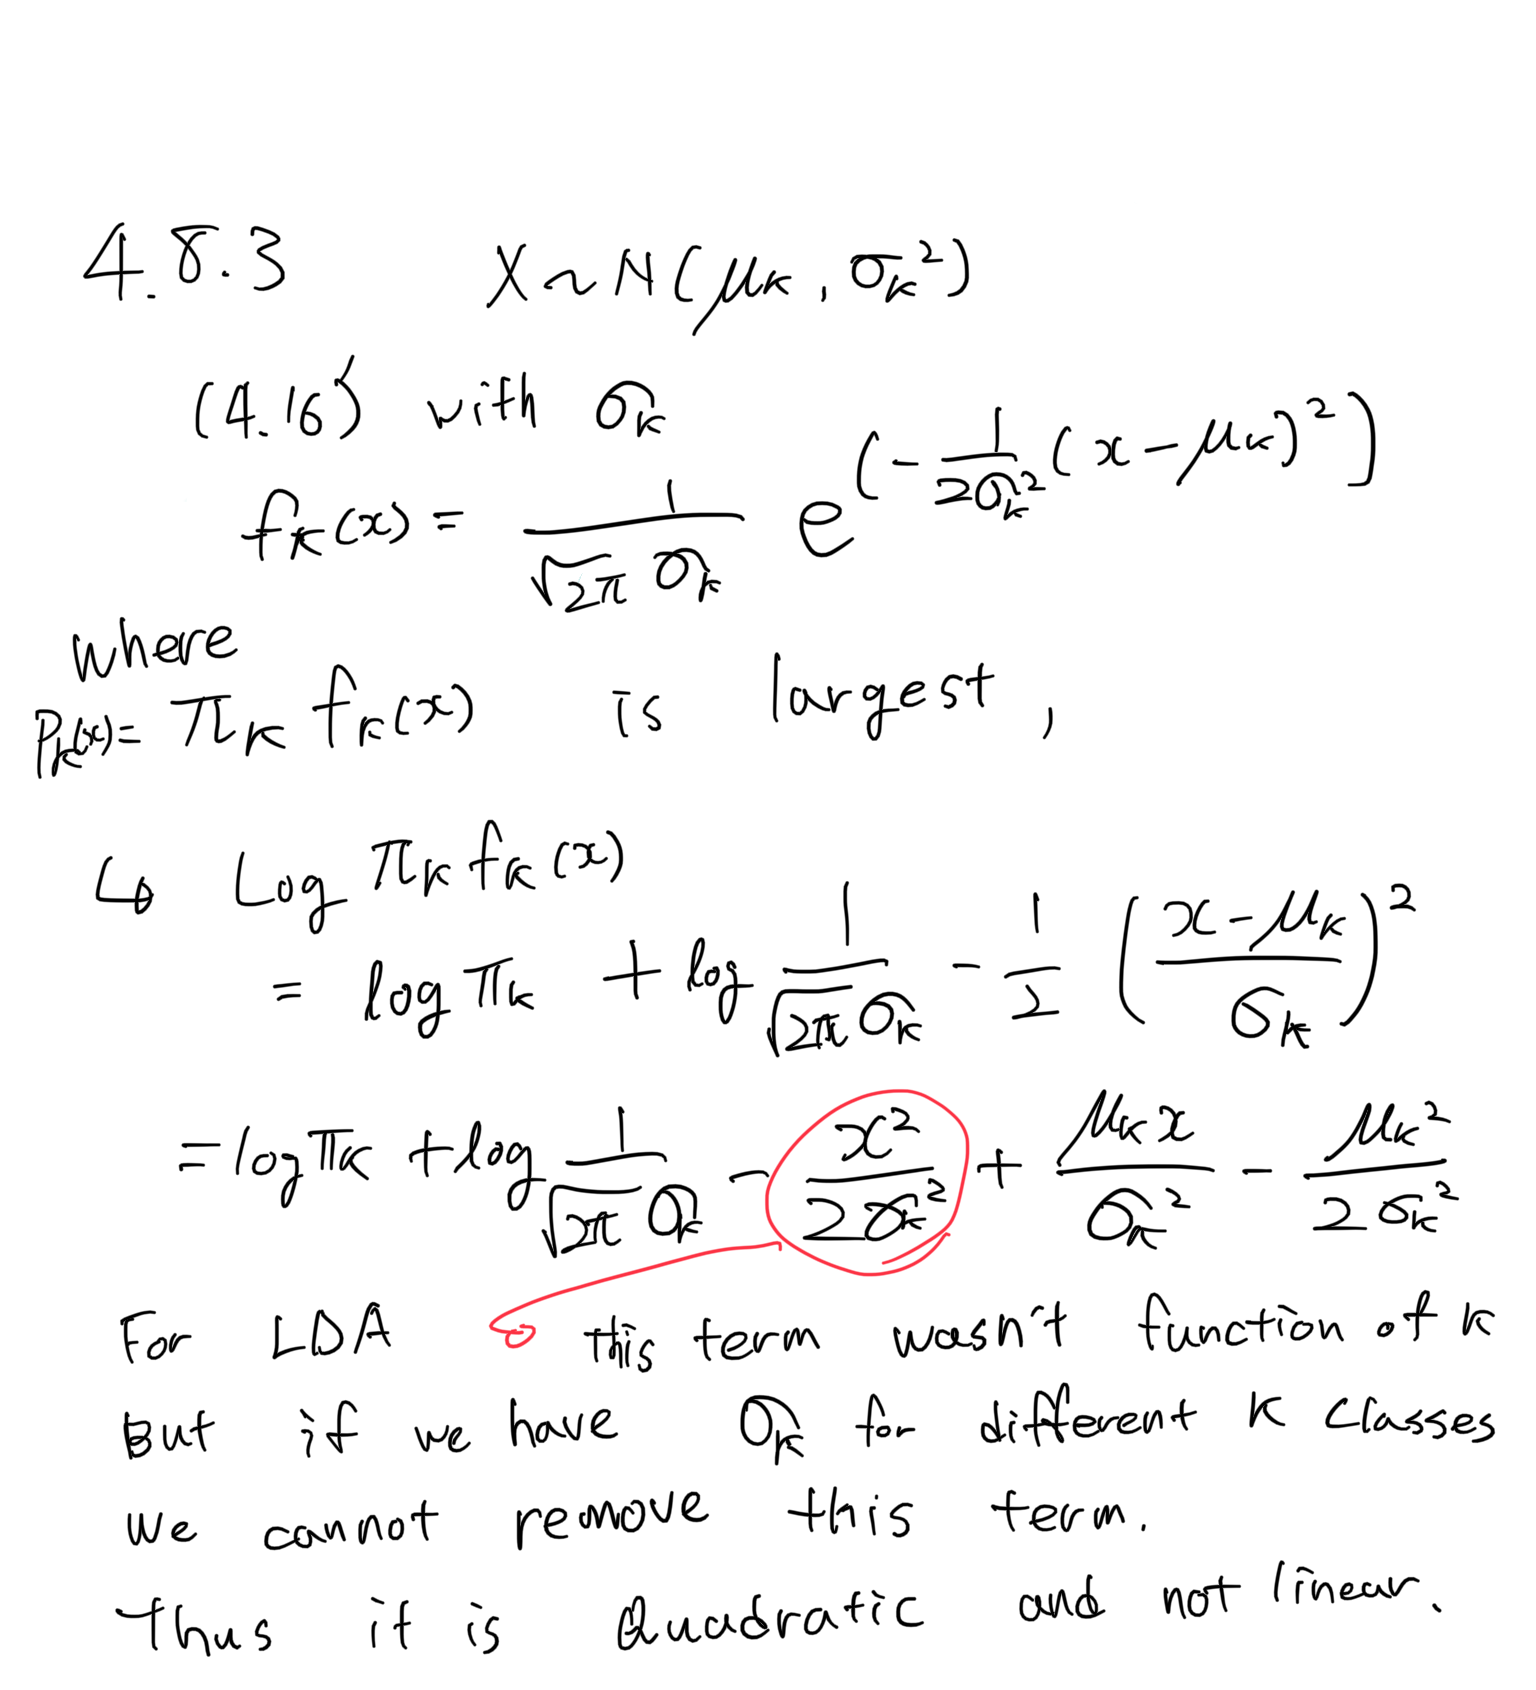 4.8.3 X ~ N(μₖ, σₖ²)
(4.16) with σₖ
fₖ(x) = 1/(√2π σₖ) e^(-1/(2σₖ²)(x-μₖ)²)
where
Pₖ(x) = πₖ fₖ(x) is largest,
↳ Log πₖ fₖ(x)
= log πₖ + log 1/(√2π σₖ) - 1/2 ((x-μₖ)/σₖ)²
= log πₖ + log 1/(√2π σₖ) - x²/(2σₖ²) + μₖx/σₖ² - μₖ²/(2σₖ²)
For LDA this term wasn't function of k
But if we have σₖ for different k classes
We cannot remove this term.
Thus it is Quadratic and not linear.